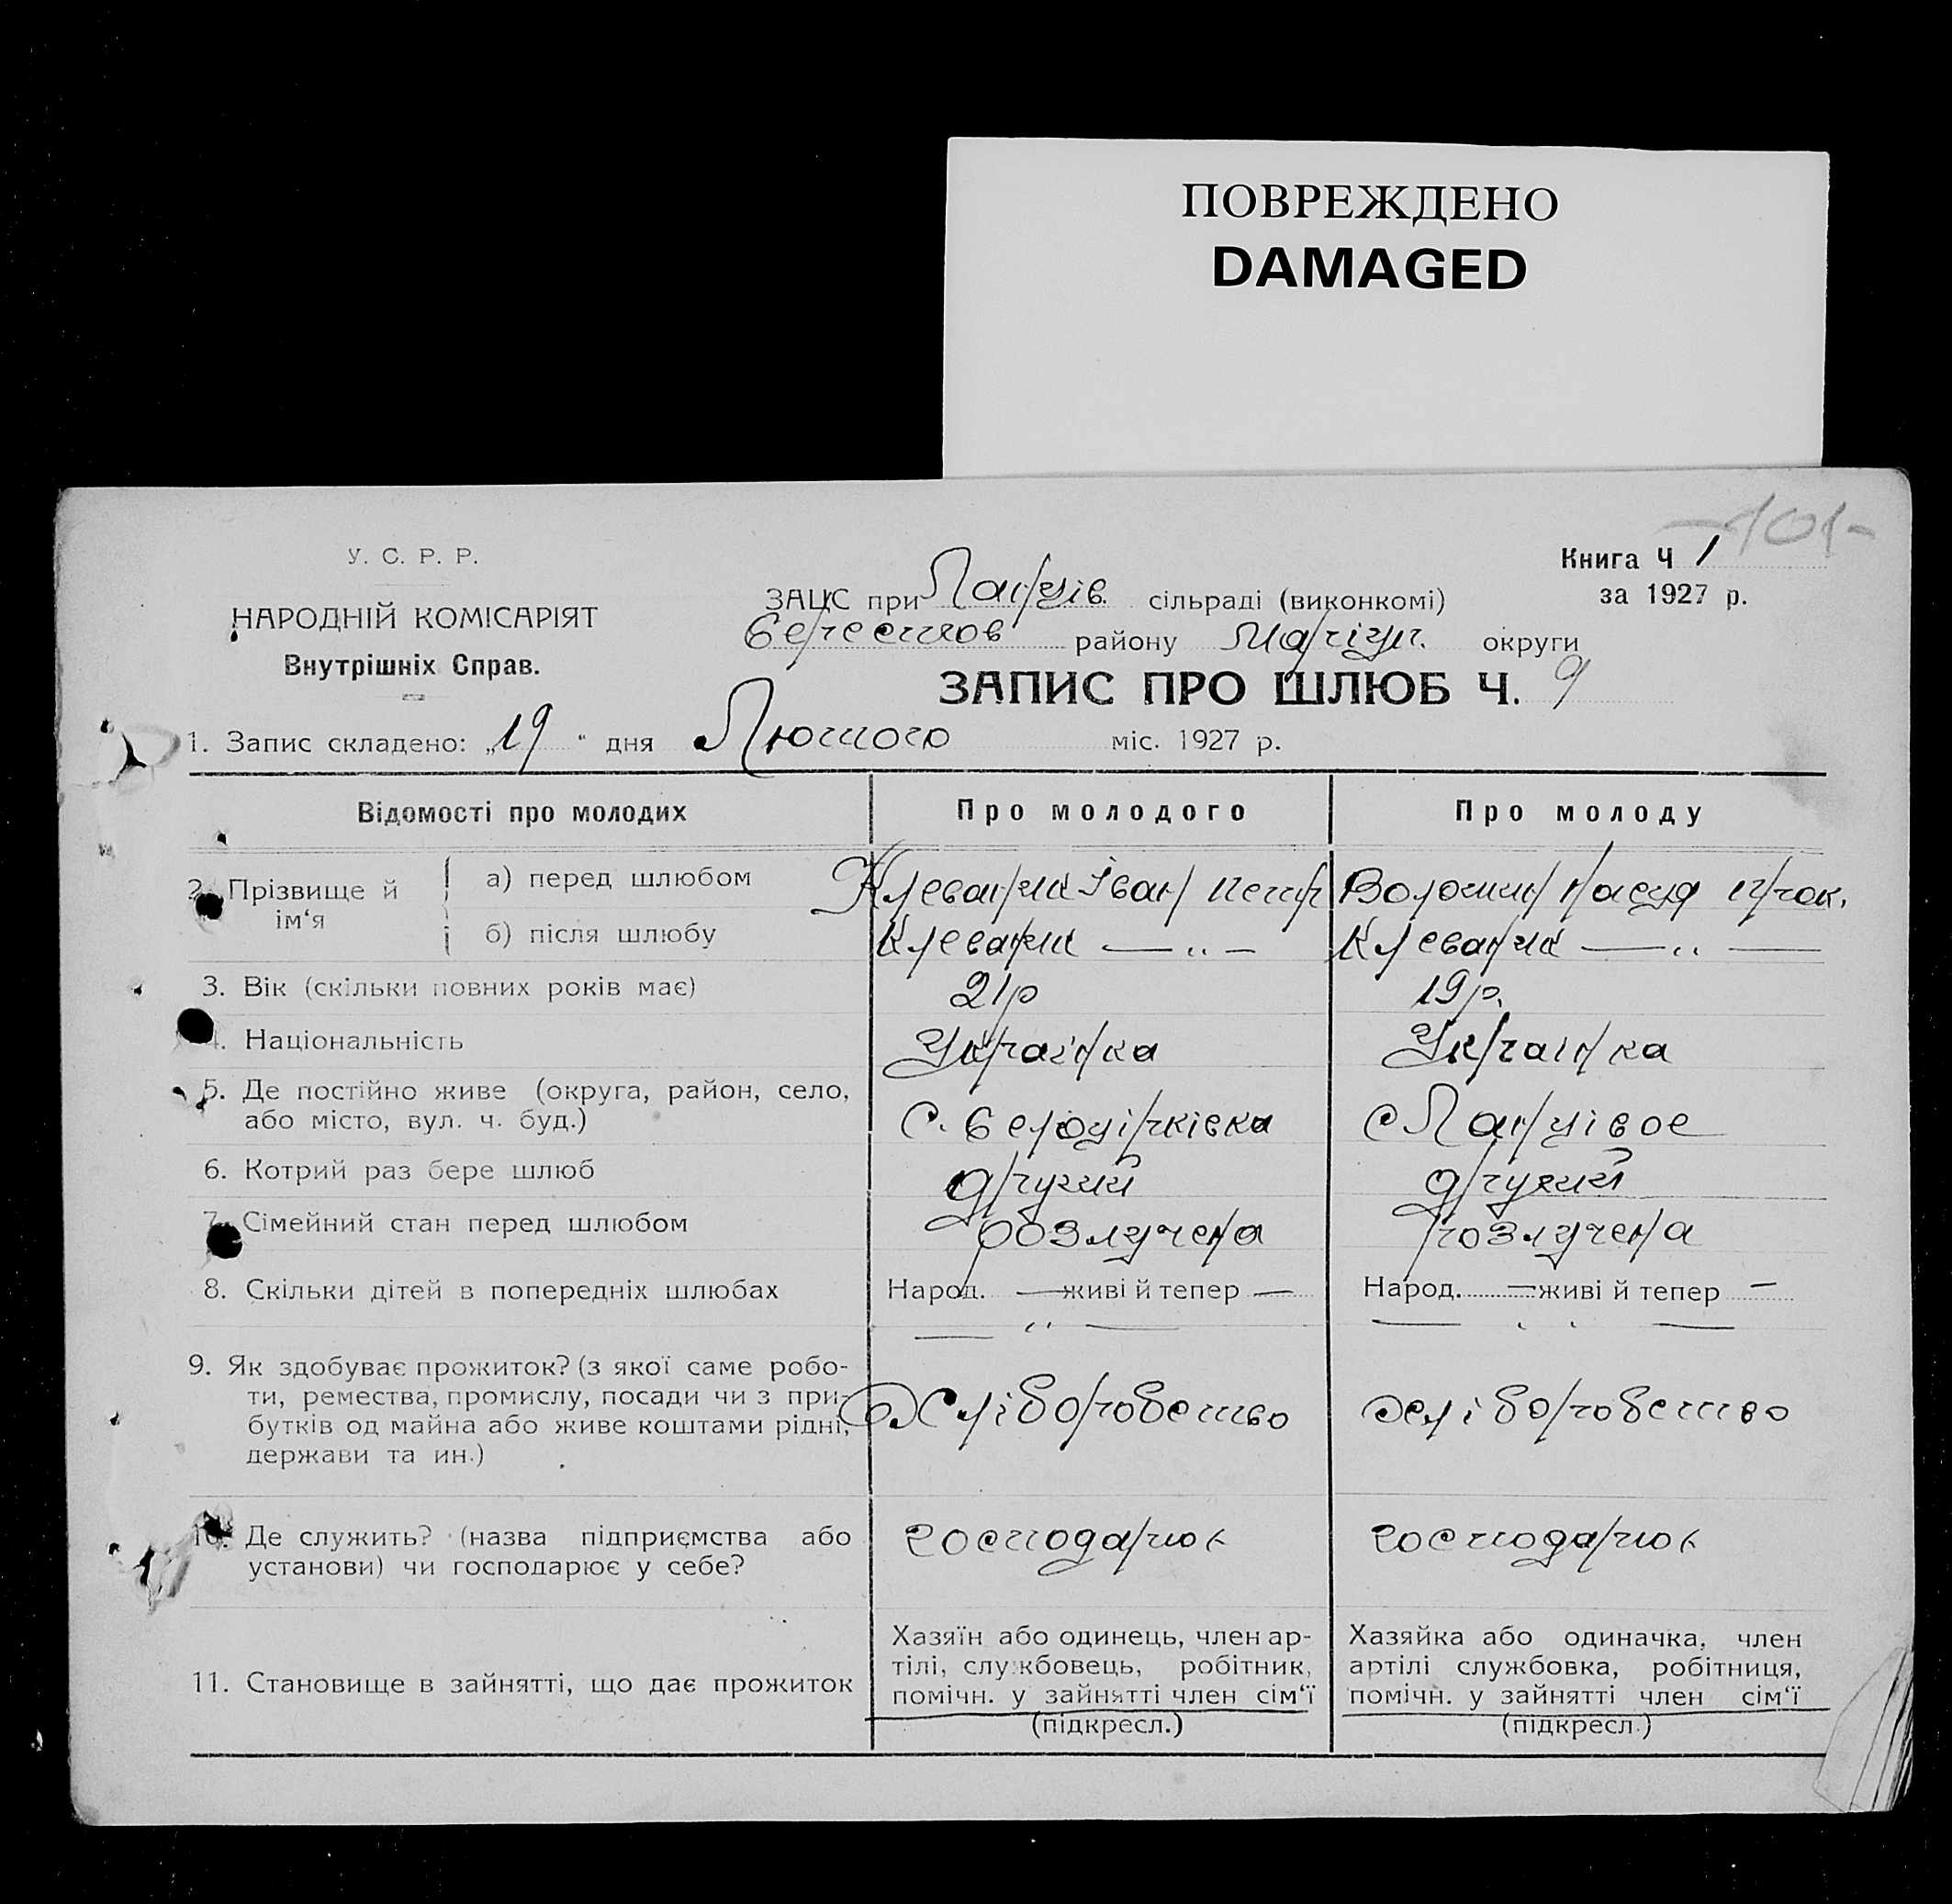 ПОВРЕЖДЕНО
DAMAGED
-101-
У. С. Р. Р.
НАРОДНІЙ КОМІСАРІЯТ
Внутрішніх Справ.
Книга Ч 1
за 1927 р.
ЗАЦС при сільраді (виконкомі)
району Маріуп. округи
ЗАПИС ПРО ШЛЮБ Ч. 9
1. Запис складено: „19“ дня Лютого міс. 1927 р.
Відомості про молодих Про молодого Про молоду
2. Прізвище й ім‘я
а) перед шлюбом Іван Петр Волошин
б) після шлюбу — „ — — „ —
3. Вік (скільки повних років має) 21р 19р.
4. Національність Українка Українка
5. Де постійно живе (округа, район, село, с. с
або місто, вул. ч. буд.)
6. Котрий раз бере шлюб другий другий
7. Сімейний стан перед шлюбом розлучена розлучена
8. Скільки дітей в попередніх шлюбах Народ. — живі й тепер — Народ. — живі й тепер —
— „ — — „ —
9. Як здобуває прожиток? (з якої саме робо-
ти, ремества, промислу, посади чи з при-
бутків од майна або живе коштами рідні, Хліборобство хліборобство
держави та ин.)
10. Де служить? (назва підприємства або господарює господарює
установи) чи господарює у себе?
11. Становище в зайнятті, що дає прожиток
Хазяїн або одинець, член ар-
тілі, службовець, робітник,
помічн. у зайнятті член сім‘ї
(підкресл.)
Хазяйка або одиначка, член
артілі службовка, робітниця,
помічн. у зайнятті член сім‘ї
(підкресл.)